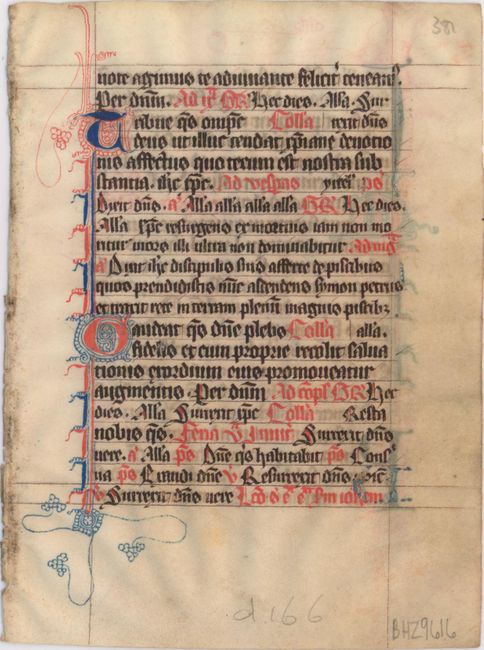 381
note agimus te adiuuante felicit͛ teneam⁹.
Per dnm̄. Ad
Hec dies. Alla Sur
Tribue q̄s omīps Collā rexit dn̄s
deus ut illuc tendat xp̄iane deuotio
nis affectus quo tecum est nostra sub
stantia. Ad vesp̄as
Dixit dn̄s. a᷑ Alla alla alla alla GR̄ Hec dies.
Alla xp̄c resurgens ex mortuis iam non mo
ritur mors illi ultra non dominabitur Ad
a᷑ Dixit ih̄c discipulis suis afferte de piscibus
quos prendidistis nūc ascendens symon petrus
et traxit rete in terram plenū magnis piscibꝫ
Gaudeat q̄s dn̄e plebs Collā alla.
fidelis et cum proprie recolit salua
tionis exordium eius promoueatur
augmentis Per dn̄m Ad cōpl̄ GR̄ Hec
dies. Alla Surrexit xp̄c Collā Resta
nobis q̄s. Feria Surrexit dn̄s
uere. a᷑ Alla p̄s Dn̄e q̄s habitabit p̄s Cons̄
ua p̄s Exaudi dn̄e V Resurrexit dn̄s
V Surrexit dn̄s uere
d.166
BHZ9616